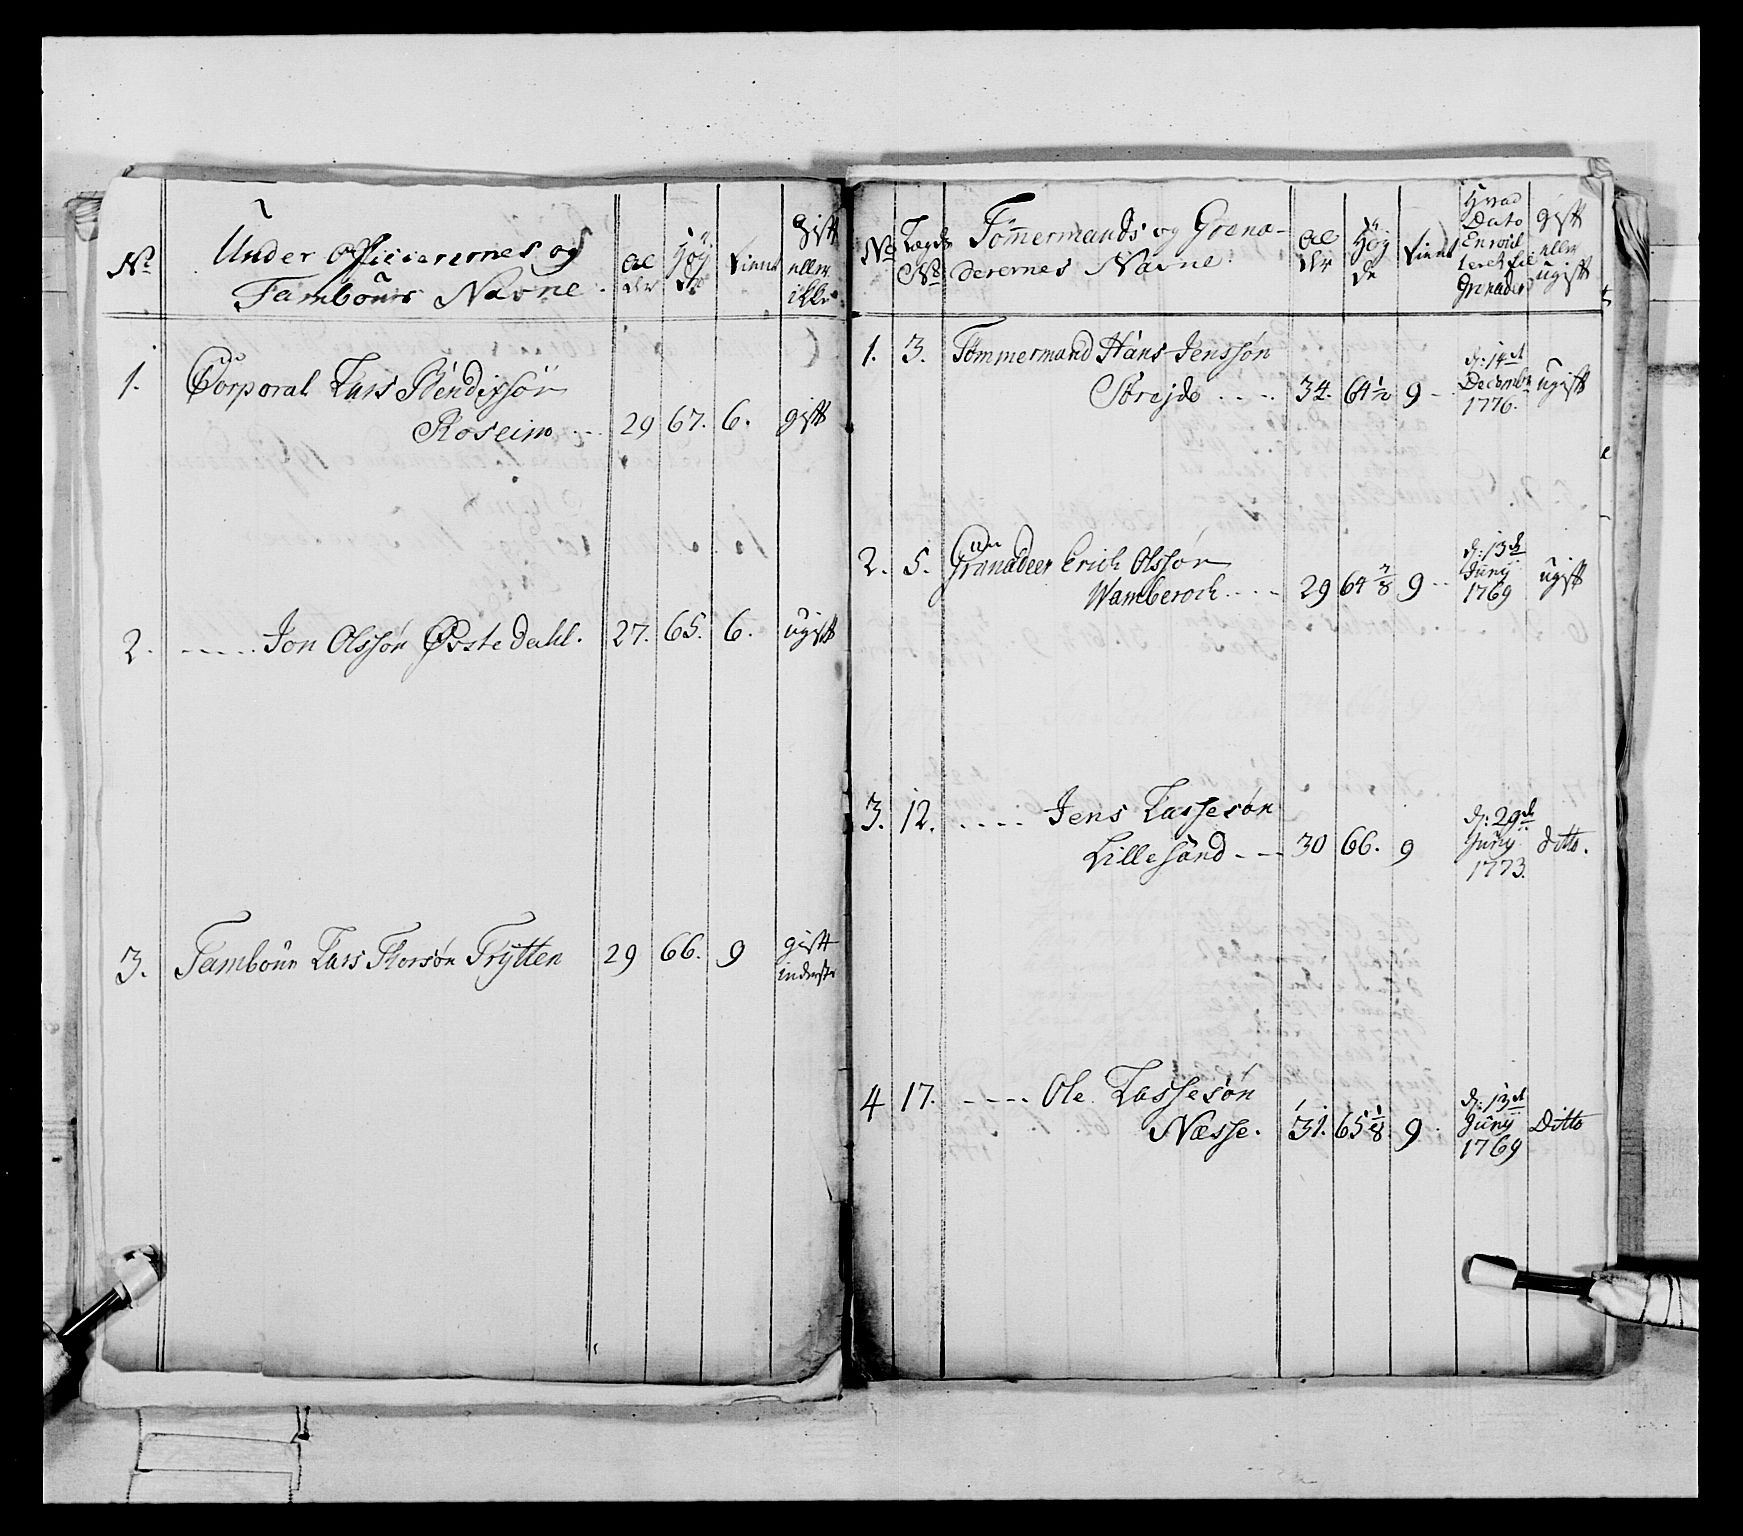 No.
Under Officierernes og
Tambours Navne.
Al
der
Høy
de
Tient
Gift
eller
ikke
1.
Corporal Lars Bendixsøn
Roseim ... 29 67. 6. gift
2. ..... Jon Olssøn Øvstedahl. 27. 65. 6. ugift
3. Tambour Lars Thorsøn Trytten 29 66. 9 gift
inderste
No
Lægds
No
Tømmermands og Grena-
derernes Navne.
Al
der
Høy
de
Tient
Hvad
Dato
Enhver
er
Grenader
gift
eller
ugift
1. 3. Tømmermand Hans Jenssøn
34. 64½ 9 d: 14d
Decembr
1776. ugift
2. 5. Granadeer Erich Olssøn
Wamberoch .... 29 64⅞ 9 d: 13d
Juny
1769 ugift
3. 12. .... Jens Lassesøn
Lillesand 30 66. 9 d: 29d
Juny
1773. ditto.
4 17. .... Ole Lassesøn
Næsse. 31. 65⅛ 9 d: 13d
Juny
1769 Ditto